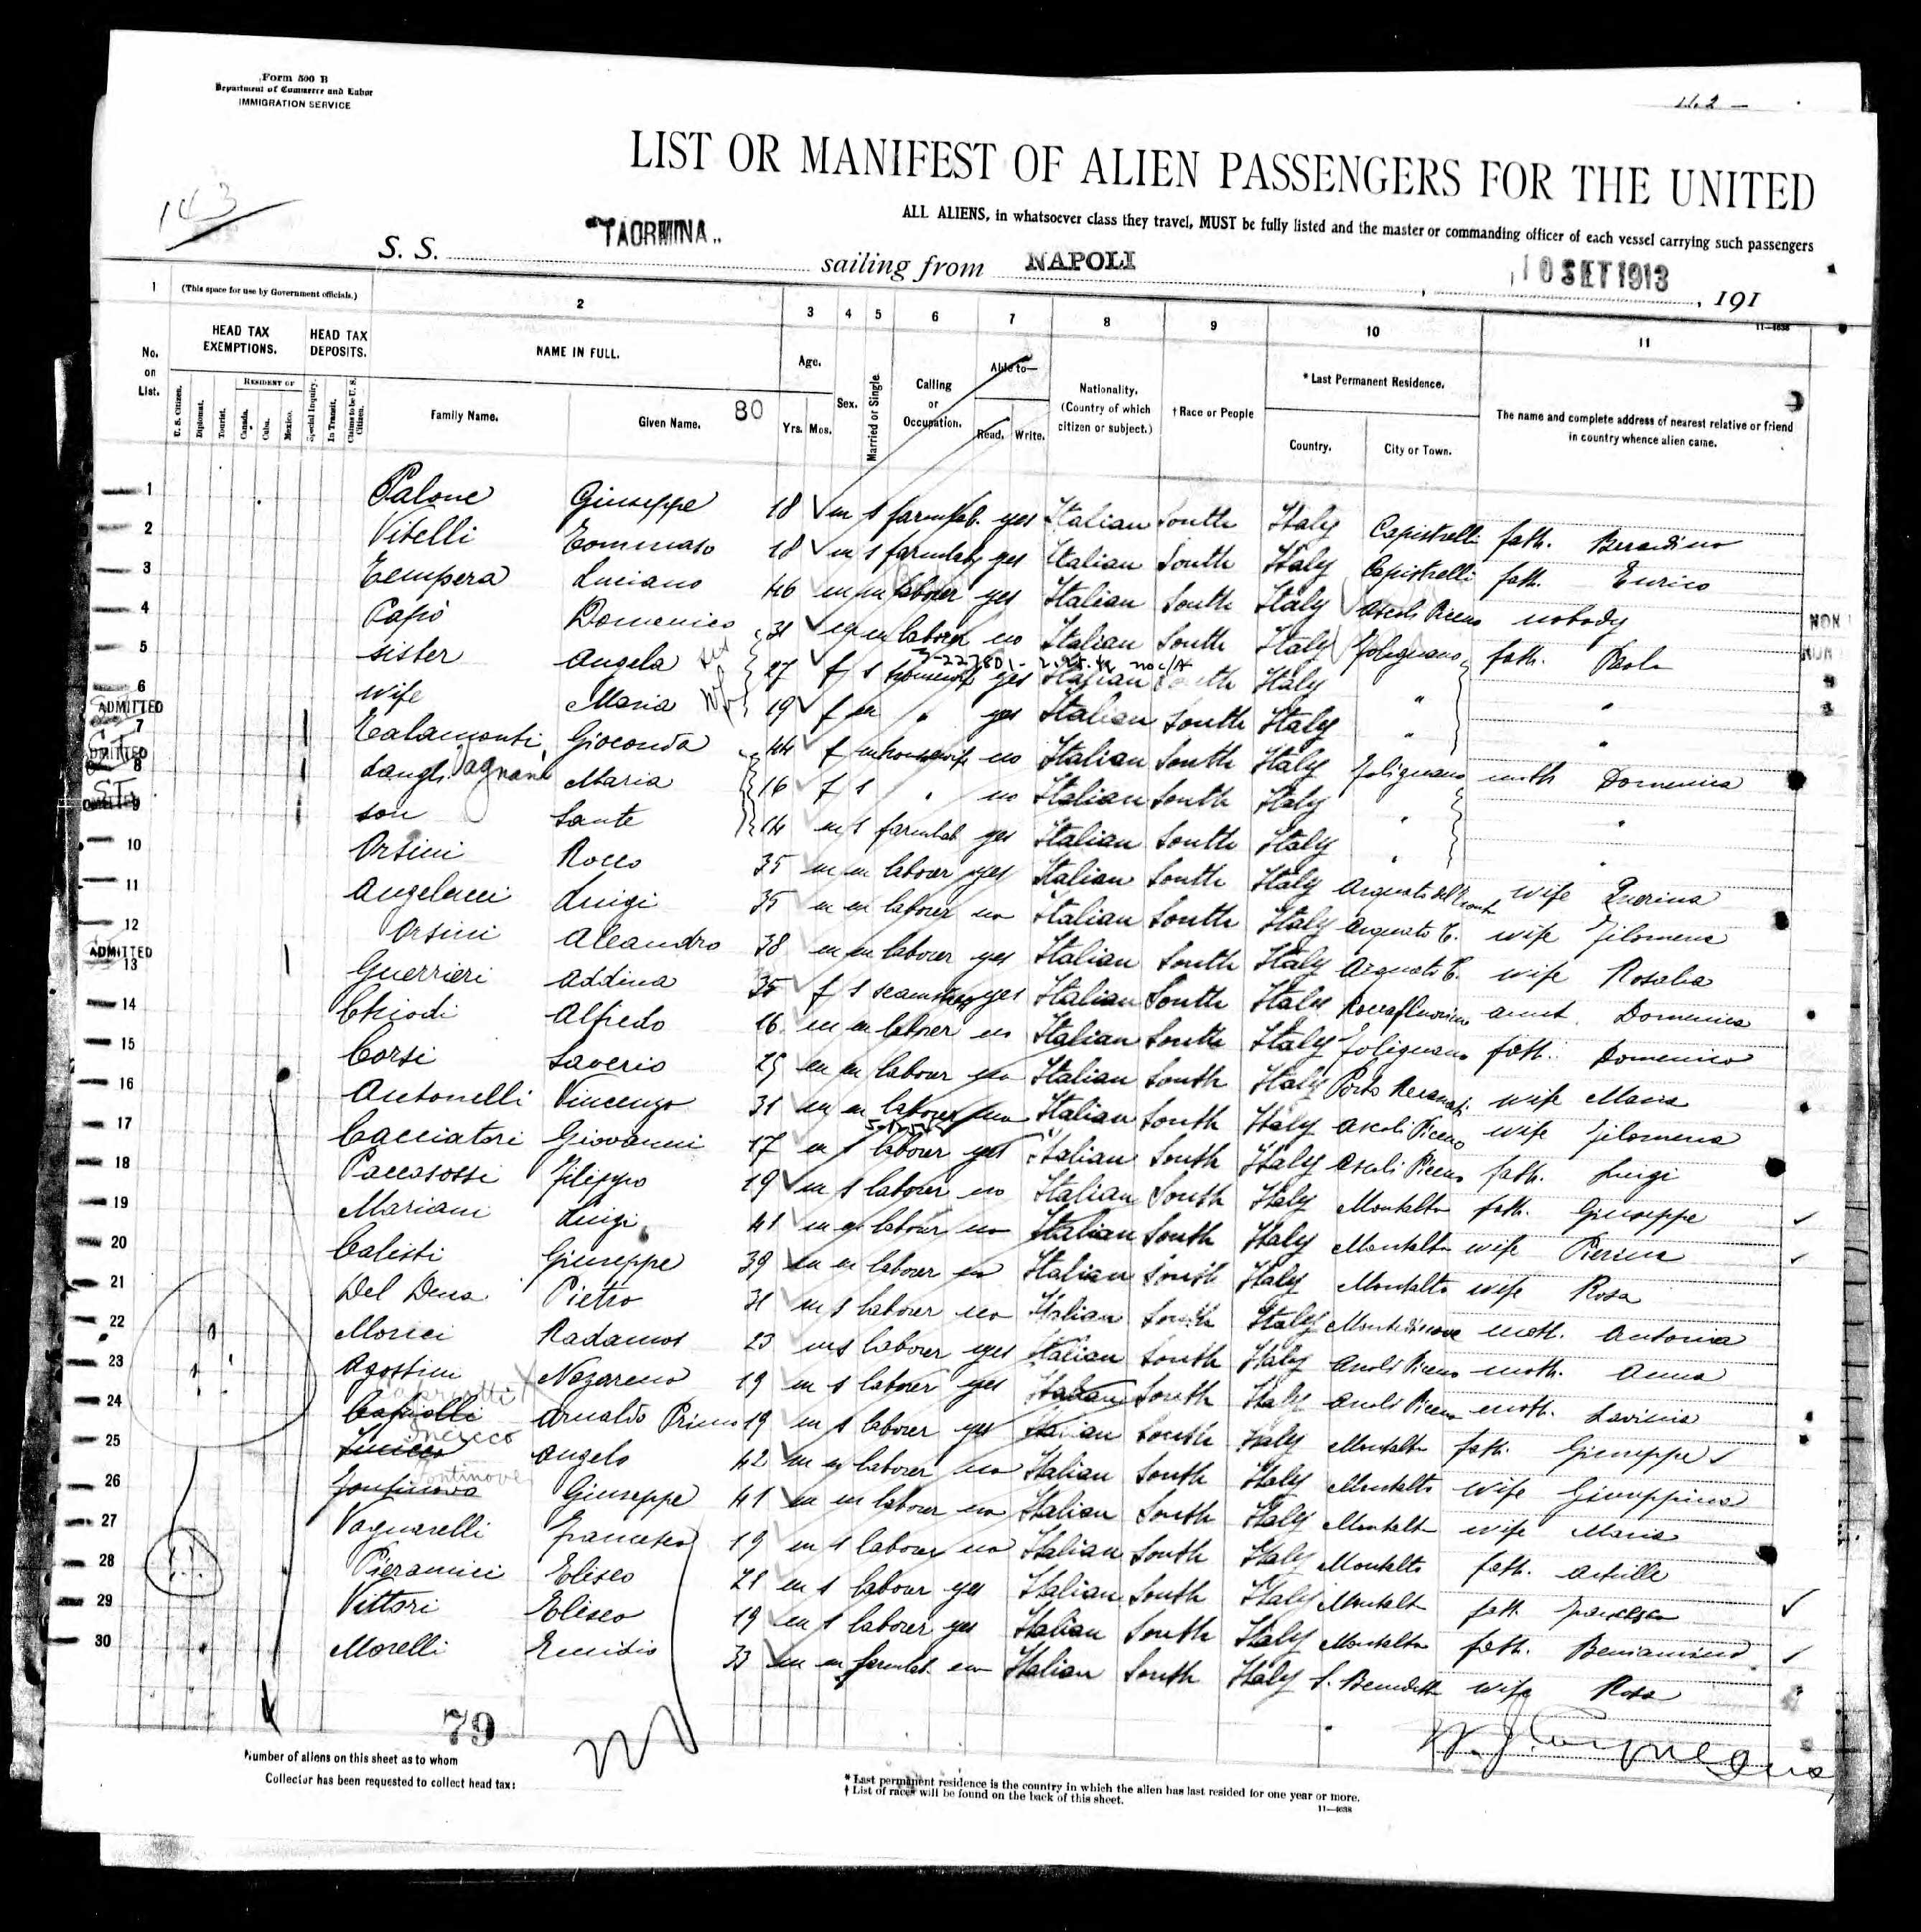 Form 500 B
Department of Commerce and Labor
IMMIGRATION SERVICE
143
LIST OR MANIFEST OF ALIEN PASSENGERS FOR THE UNITED
ALL ALIENS, in whatsoever class they travel, MUST be fully listed and the master or commanding officer of each vessel carrying such passengers
S. S. "TAORMINA" sailing from NAPOLI, 10 SET 1913, 191
11—4638
1 (This space for use by Government officials.) 2 3 4 5 6 7 8 9 10 11
No. on List. HEAD TAX EXEMPTIONS. HEAD TAX DEPOSITS. NAME IN FULL. Age. Sex. Married or Single. Calling or Occupation. Able to— Nationality. (Country of which citizen or subject.) † Race or People * Last Permanent Residence. The name and complete address of nearest relative or friend in country whence alien came.
U. S. Citizen. Diplomat. Tourist. RESIDENT OF Canada. Cuba. Mexico. Special Inquiry. In Transit. Claims to be U. S. Citizen. Family Name. Given Name. 80 Yrs. Mos. Read. Write. Country. City or Town.
1 Palone Giuseppe 18 m s farmlab. yes Italian South Italy Capistrelli fath. Berardino
2 Vitelli Tommaso 18 m s farmlab yes Italian South Italy Capistrelli fath. Enrico
3 Tempera Luciano 46 m m laborer yes Italian South Italy Ascoli Piceno nobody NON
4 Capiò Domenico 31 m m laborer no Italian South Italy Folignano fath. Paolo
5 sister Angela 27 f s housewife yes Italian South Italy "
6 wife Maria 19 f m " yes Italian South Italy "
ADMITTED
7 Talamonti Gioconda 44 f m housewife no Italian South Italy Folignano moth Domenica
8 Pagnani Maria 16 f s " no Italian South Italy "
9 son Sante 14 m s farmlab yes Italian South Italy "
10 Orsini Rocco 35 m m laborer yes Italian South Italy Arquata del Tronto wife Querina
11 Angelucci Luigi 35 m m laborer no Italian South Italy Arquata T. wife Filomena
12 Orsini Aleandro 38 m m laborer yes Italian South Italy Arquata T. wife Rosalia
ADMITTED
13 Guerrieri Addina 35 f s seamstress yes Italian South Italy Roccafluvione aunt. Domenica
14 Chiodi Alfredo 16 m m laborer no Italian South Italy Folignano fath. Domenico
15 Corsi Saverio 29 m m laborer no Italian South Italy Porto Recanati wife Maria
16 Antonelli Vincenzo 31 m m laborer no Italian South Italy Ascoli Piceno wife Filomena
17 Cacciatori Giovanni 17 m s laborer yes Italian South Italy Ascoli Piceno fath. Luigi
18 Paccasassi Filippo 19 m s laborer no Italian South Italy Montalto fath. Giuseppe
19 Mariani Luigi 41 m m laborer no Italian South Italy Montalto wife Pierina
20 Calisti Giuseppe 39 m m laborer no Italian South Italy Montalto wife Rosa
21 Del Dena Pietro 31 m s laborer no Italian South Italy moth. Antonia
22 Morici Radames 23 m s laborer yes Italian South Italy Ascoli Piceno moth. Anna
23 Agostini Nazareno 19 m s laborer yes Italian South Italy Ascoli Piceno moth. Lavinia
24 Capriotti Arnaldo Primo 19 m s laborer yes Italian South Italy Montalto fath. Giuseppe
25 Angelo 42 m m laborer no Italian South Italy Montalto wife Giuseppina
26 Giuseppe 41 m m laborer no Italian South Italy Montalto wife Maria
27 Vagnarelli Francesco 19 m s laborer no Italian South Italy Montalto fath. Achille
28 Pieramici Eliseo 21 m s laborer yes Italian South Italy Montalto fath. Francesco
29 Vittori Eliseo 19 m s laborer yes Italian South Italy Montalto fath. Beniamino
30 Morelli Emidio 33 m m farmlab. no Italian South Italy S. Benedetto wife Rosa
79
Number of aliens on this sheet as to whom
Collector has been requested to collect head tax:
* Last permanent residence is the country in which the alien has last resided for one year or more.
† List of races will be found on the back of this sheet.
11—4638